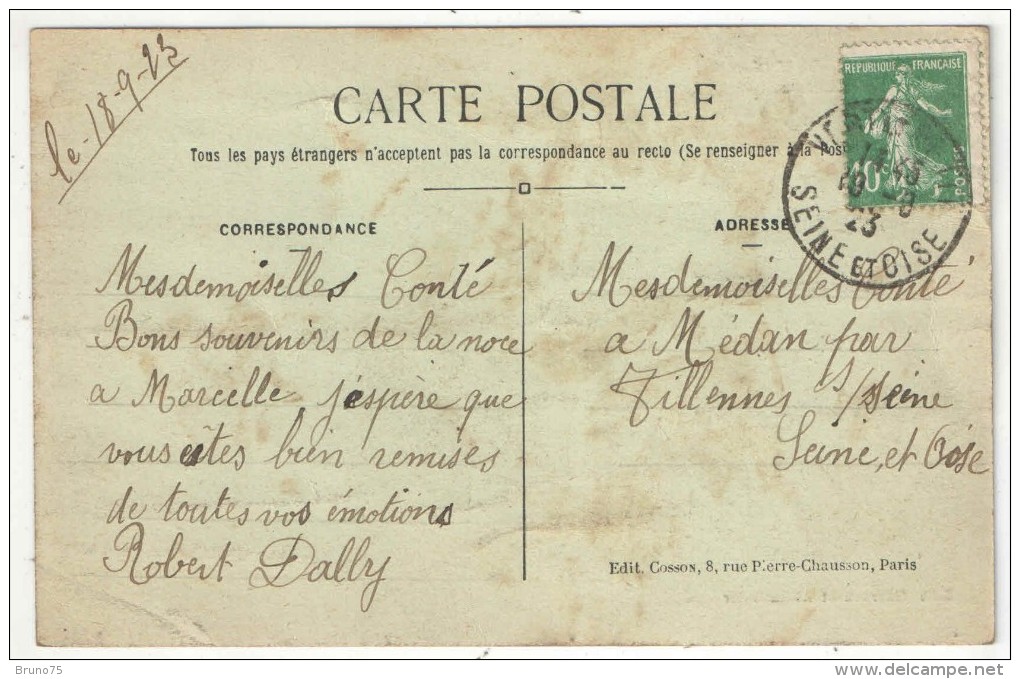 le - 18-9-23
CARTE POSTALE
Tous les pays étrangers n'acceptent pas la correspondance au recto (Se renseigner à la Pos
CORRESPONDANCE
Mesdemoiselles Conté
Bons souvenirs de la noce
a Marcelle j'espère que
vous etes bien remises
de toutes vos émotions
Robert Dally
REPUBLIQUE FRANÇAISE
10c
POSTES
23
SEINE ET OISE
ADRESSE
Mesdemoiselles Conté
a Médan par
Villennes s/Seine
Seine et Oise
Edit. Cosson, 8, rue Pierre-Chausson, Paris
Bruno75
delcampe.net